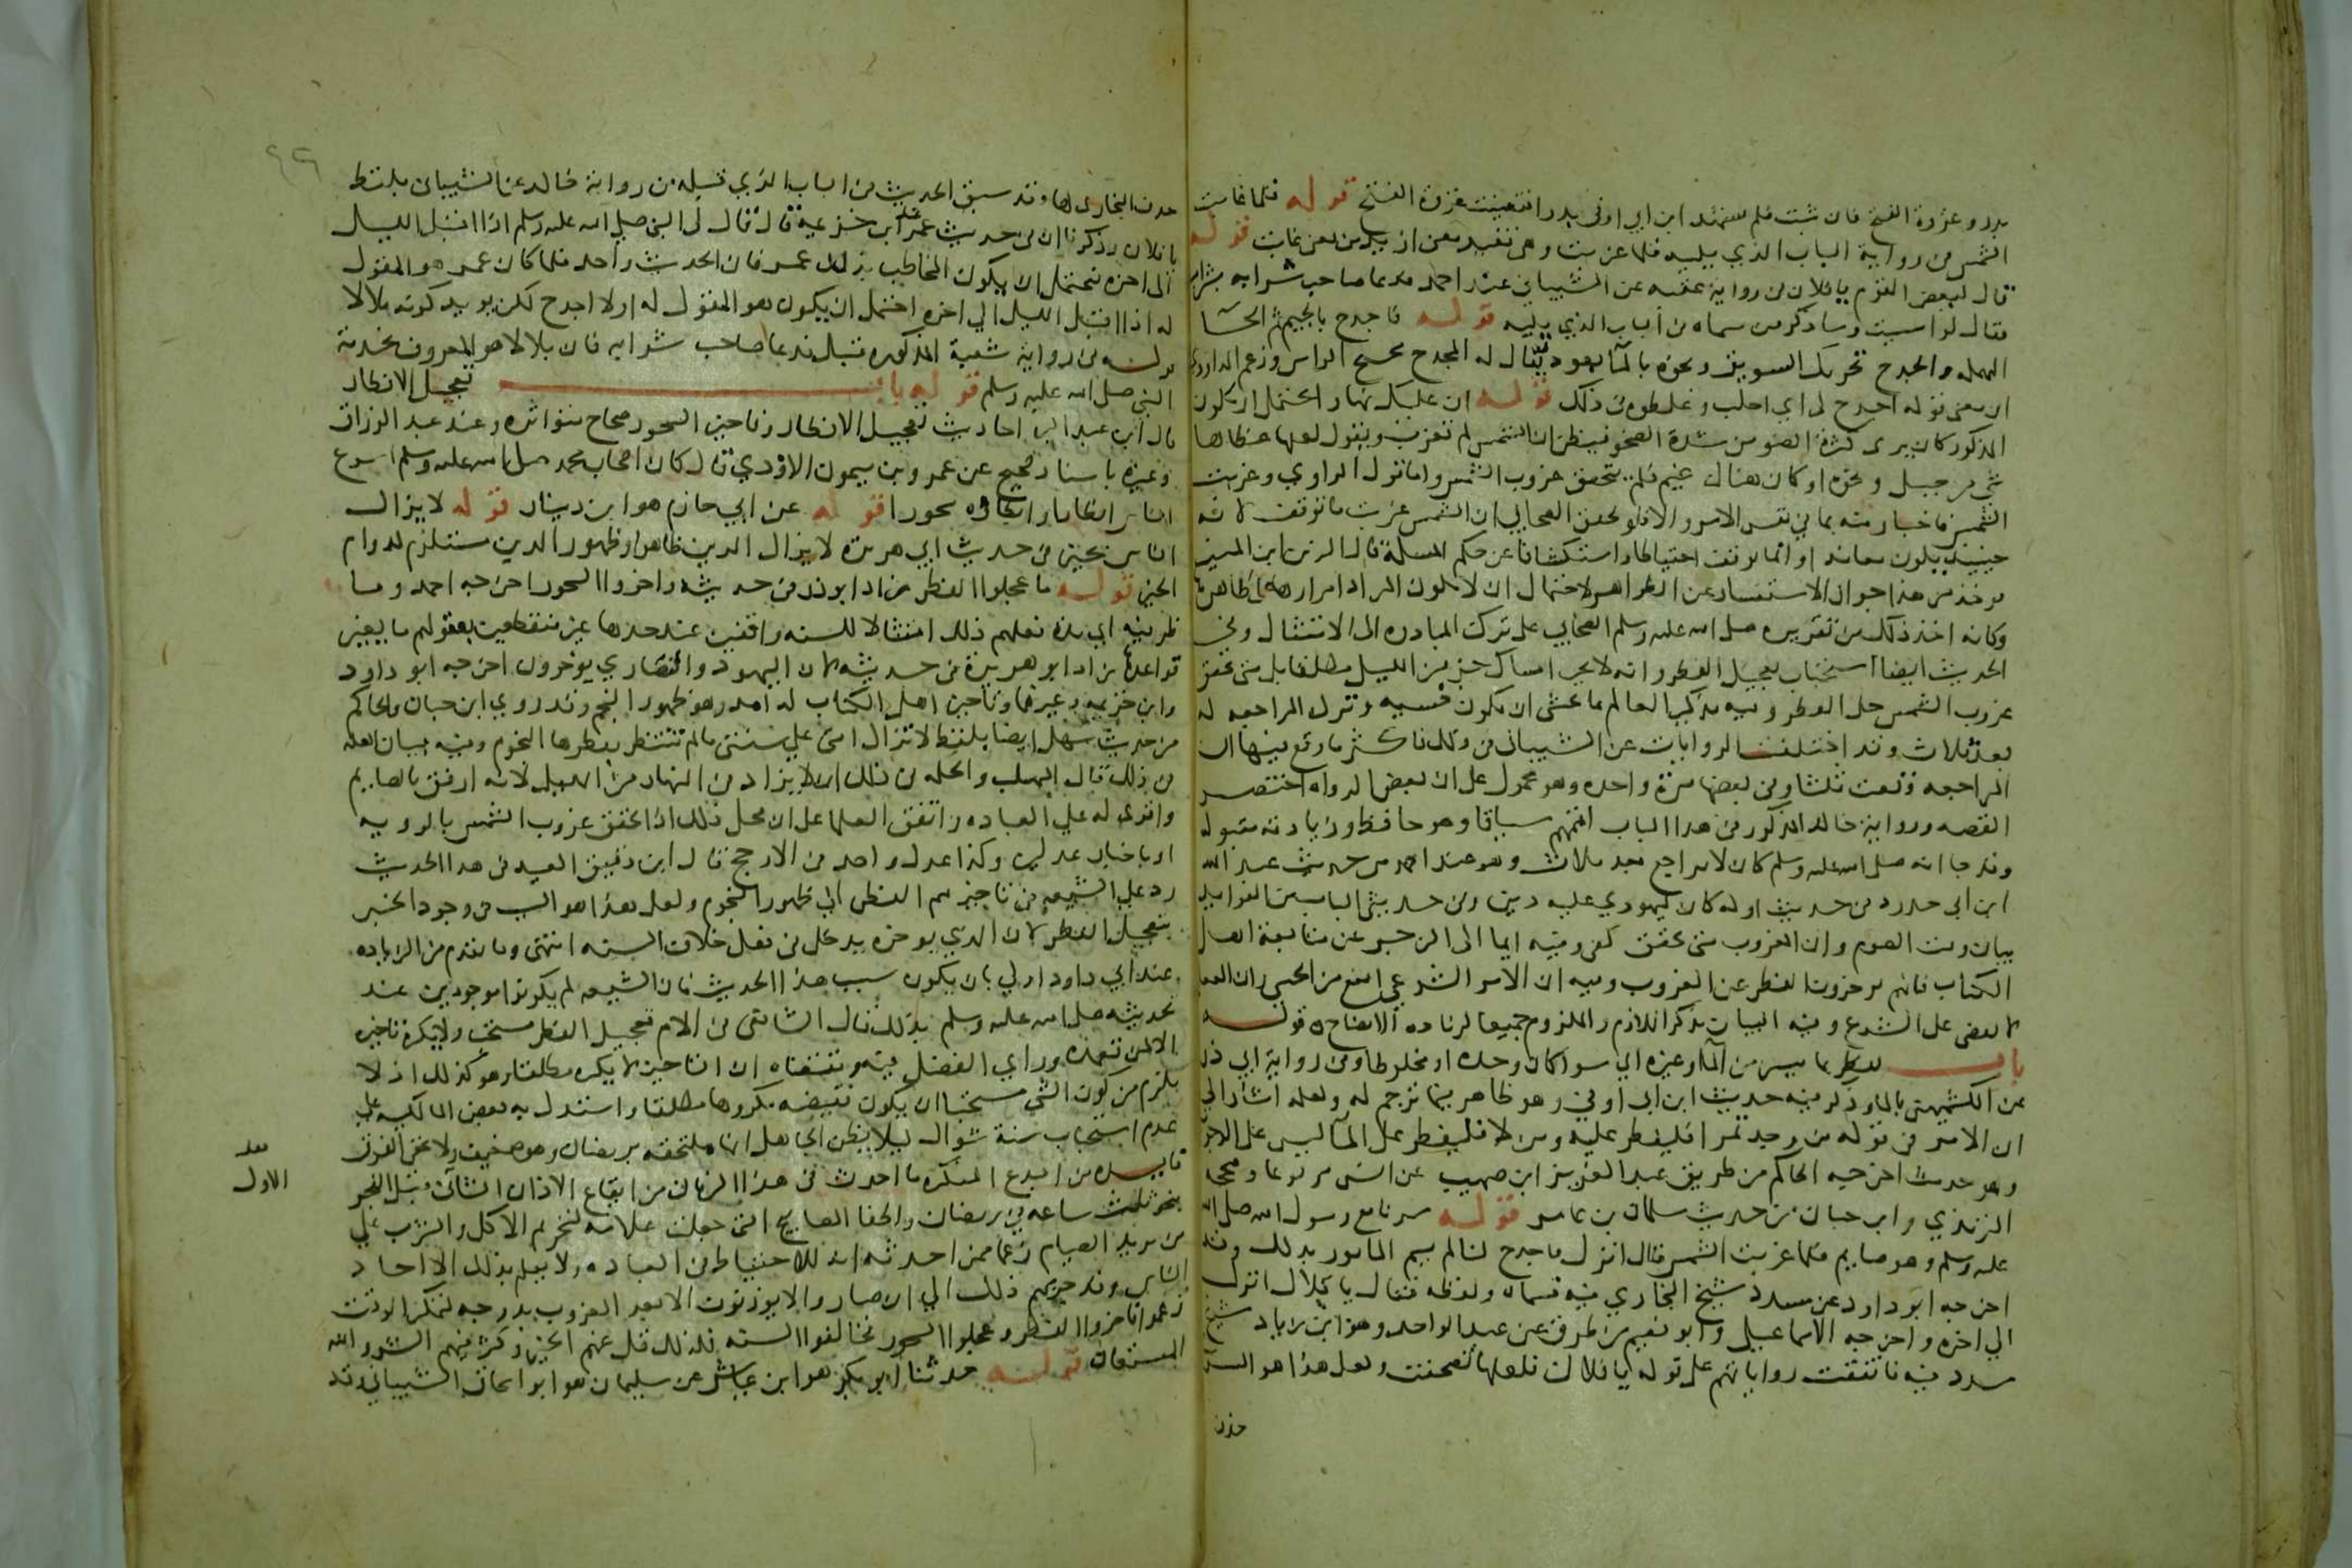 بدر وغزوة الفتح فان ثبت فلم يشهد ابن ابي اوفى بدرا فتعينت غزوة الفتح قوله فلما غابت
الشمس في رواية الباب الذي يليه فلما غربت وهي تفيد معنى ازيد من معنى غابت قوله
قال لبعض القوم يا فلان في رواية شعبه عن الشيباني عند احمد فدعا صاحب شرابه بشراب
فقال لو امسيت وساذكر من سماه في الباب الذي يليه قوله فاجدح بالجيم ثم الحا
المهمله والجدح تحريك السويق ونحوه بالما بعود يقال له المجدح مجنح الراس وزعم الداودي
ان معنى قوله اجدح لي اي احلب وغلطوه في ذلك قوله ان عليك نهارا يحتمل ان يكون
المذكور كان يرى كثرة الضو من شدة الصحو فيظن ان الشمس لم تغرب ويقول لعلها غطاها
شي من جبل ونحوه او كان هناك غيم فلم يتحقق غروب الشمس واما قول الراوي وغربت
الشمس فاخبار منه بما في نفس الامر والا فلو تحقق الصحابي ان الشمس غربت ما توقف لانه
حينيذ يكون معاندا وانما توقف احتياطا واستكشافا عن حكم المسلة قال الزين ابن المنير
يوخذ من هذا جواز الاستفسار عن الظواهر لاحتمال ان لا يكون المراد امرارها على ظاهرها
وكانه اخذ ذلك من تقريره صلى الله عليه وسلم الصحابي على ترك المبادره الى الامتثال وفي
الحديث ايضا استحباب تعجيل الفطر وانه لا يجب امساك جزء من الليل مطلقا بل متى تحقق
غروب الشمس حل الفطر وفيه تذكير العالم بما يخشى ان يكون نسيه وترك المراجعه له
بعد ثلاث وقد اختلفت الروايات عن الشيباني في ذلك فاكثر ما وقع فيها ان
المراجعه وقعت ثلثا وفي بعضها مرة واحده وهو محمول على ان بعض الرواه اختصر
القصه ورواية خالد المذكور في هذا الباب اتمهم سياقا وهو حافظ وزيادته مقبوله
وقد جا انه صلى الله عليه وسلم كان لا يراجع بعد ثلاث وهو عند احمد من حديث عبد الله
ابن ابي حدرد في حديث اوله كان ليهودي عليه دين وفي حديثي الباب من الفوايد
بيان وقت الصوم وان الغروب متى تحقق كفى وفيه ايما الى الزجر عن متابعة اهل
الكتاب فانهم يوخرون الفطر عن الغروب وفيه ان الامر الشرعي ابلغ من الحسي وان العقل
لا يقضي على الشرع وفيه البيان بذكر اللازم والملزوم جميعا لزياده الايضاح ٥ قوله
باب يفطر بما تيسر من الما وغيره اي سوا كان وحده او مخلوطا وفي رواية ابي ذر
عن الكشميهني بالما وذكر فيه حديث ابن ابي اوفى وهو ظاهر فيما ترجم له ولعله اشار الى
ان الامر في قوله من وجد تمرا فليفطر عليه ومن لا فليفطر على الما ليس على الوجوب
وهو حديث اخرجه الحاكم من طريق عبد العزيز ابن صهيب عن انس مرفوعا وصححه
الترمذي وابن حبان من حديث سلمان بن عامر قوله سرنا مع رسول الله صلى الله
عليه وسلم وهو صايم فلما غربت الشمس قال انزل فاجدح لنا لم يسم المامور بذلك وقد
اخرجه ابو داود عن مسدد شيخ البخاري فيه فسماه ولفظه فقال يا بلال انزل
الى اخره واخرجه الاسماعيلي وابو نعيم من طرق عن عبد الواحد وهو ابن زياد شيخ
مسدد فيه فاتفقت رواياتهم على قوله يا فلان فلعلها تصحفت ولعل هذا هو السر
حذف
حذف البخاري لها وقد سبق الحديث في الباب الذي قبله من رواية خالد عن الشيباني بلفظ
يا فلان وذكرنا ان في حديث عمر عند ابن خزيمة قال قال لي النبي صلى الله عليه وسلم اذا اقبل الليل
الى اخره فيحتمل ان يكون المخاطب بذلك عمر فان الحديث واحد فلما كان عمر هو المقول
له اذا اقبل الليل الى اخره احتمل ان يكون هو المقول له اولا اجدح لكن يويد كونه بلالا
قوله في رواية شعبة المذكوره قبل فدعا صاحب شرابه فان بلالا هو المعروف بخدمة
النبي صلى الله عليه وسلم قوله باب تعجيل الافطار
قال ابن عبد البر احاديث تعجيل الافطار وتاخير السحور صحاح متواتره وعند عبد الرزاق
وغيره باسناد صحيح عن عمرو بن ميمون الاودي قال كان اصحاب محمد صلى الله عليه وسلم اسرع
الناس افطارا وابطاه سحورا قوله عن ابي حازم هو ابن دينار قوله لا يزال
الناس بخير في حديث ابي هريرة لا يزال الدين ظاهرا وظهور الدين مستلزم لدوام
الخير قوله ما عجلوا الفطر زاد ابو ذر في حديثه واخروا السحور اخرجه احمد وما
ظرفيه اي مدة فعلهم ذلك امتثالا للسنه واقفين عند حدها غير متنطعين بعقولهم ما يغير
قواعدها زاد ابو هريرة في حديثه لان اليهود والنصاري يوخرون اخرجه ابو داود
وابن خزيمه وغيرهما وتاخير اهل الكتاب له امد وهو ظهور النجم وقد روى ابن حبان والحاكم
من حديث سهل ايضا بلفظ لا تزال امتي على سنتي ما لم تنتظر بفطرها النجوم وفيه بيان العله
في ذلك قال المهلب والحكمه في ذلك ان لا يزاد في النهار من الليل ولانه ارفق بالصايم
واقوى له على العباده واتفق العلما على ان محل ذلك اذا تحقق غروب الشمس بالرويه
او باخبار عدلين وكذا عدل واحد في الارجح قال ابن دقيق العيد في هذا الحديث
رد على الشيعه في تاخيرهم الفطر الى ظهور النجوم ولعل هذا هو السبب في وجود الخير
بتعجيل الفطر لان الذي يوخره يدخل في فعل خلاف السنه انتهى وما تقدم من الزياده
عند ابي داود اولى بان يكون سبب هذا الحديث فان الشيعه لم يكونوا موجودين عند
تحديثه صلى الله عليه وسلم بذلك قال الشافعي في الام تعجيل الفطر مستحب ولا يكره تاخيره
الا لمن تعمده وراي الفضل فيه ومقتضاه ان التاخير لا يكره مطلقا وهو كذلك اذ لا
يلزم من كون الشي مستحبا ان يكون نقيضه مكروها مطلقا واستدل به بعض المالكيه على
عدم استحباب ستة شوال ليلا يظن الجاهل انها ملتحقه برمضان وهو ضعيف ولا يخفى الفرق
فايده من البدع المنكره ما احدث في هذا الزمان من ايقاع الاذان الثاني قبل الفجر
بنحو ثلث ساعه في رمضان واطفا المصابيح التي جعلت علامه لتحريم الاكل والشرب على
من يريد الصيام زعما ممن احدثه انه للاحتياط في العباده ولا يعلم بذلك الا احاد
الناس وقد جرهم ذلك الى ان صاروا لا يوذنون الا بعد الغروب بدرجه لتمكن الوقت
زعموا فاخروا الفطر وعجلوا السحور فخالفوا السنه فلذلك قل عنهم الخير وكثر فيهم الشر والله
المستعان قوله حدثنا ابو بكر هو ابن عياش عن سليمان هو ابو اسحاق الشيباني وقد
الاول